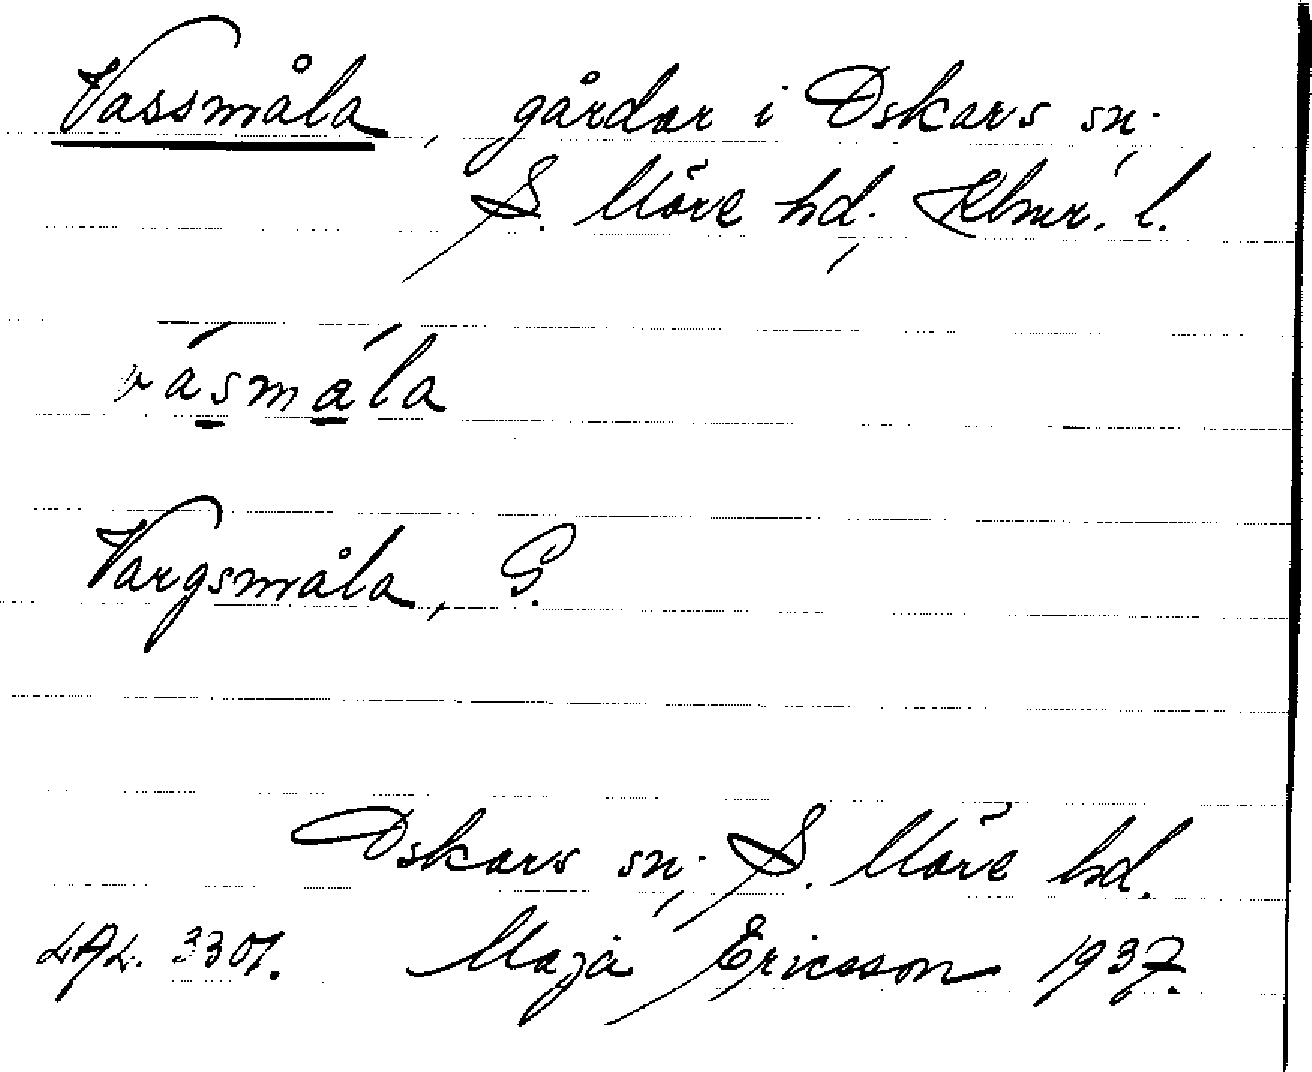 Vassmåla, gårdar i Oskars sn.
S. Möre hd, Klmr. l.
vásmála
Vargsmåla, G.
Oskars sn, S. Möre hd.
LAL. 3301. Maja Ericsson 1937.